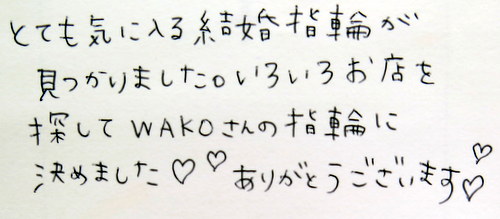 とても気に入る結婚指輪が
見つかりました。いろいろお店を
探してWAKOさんの指輪に
決めました♡♡ありがとうございます♡♡